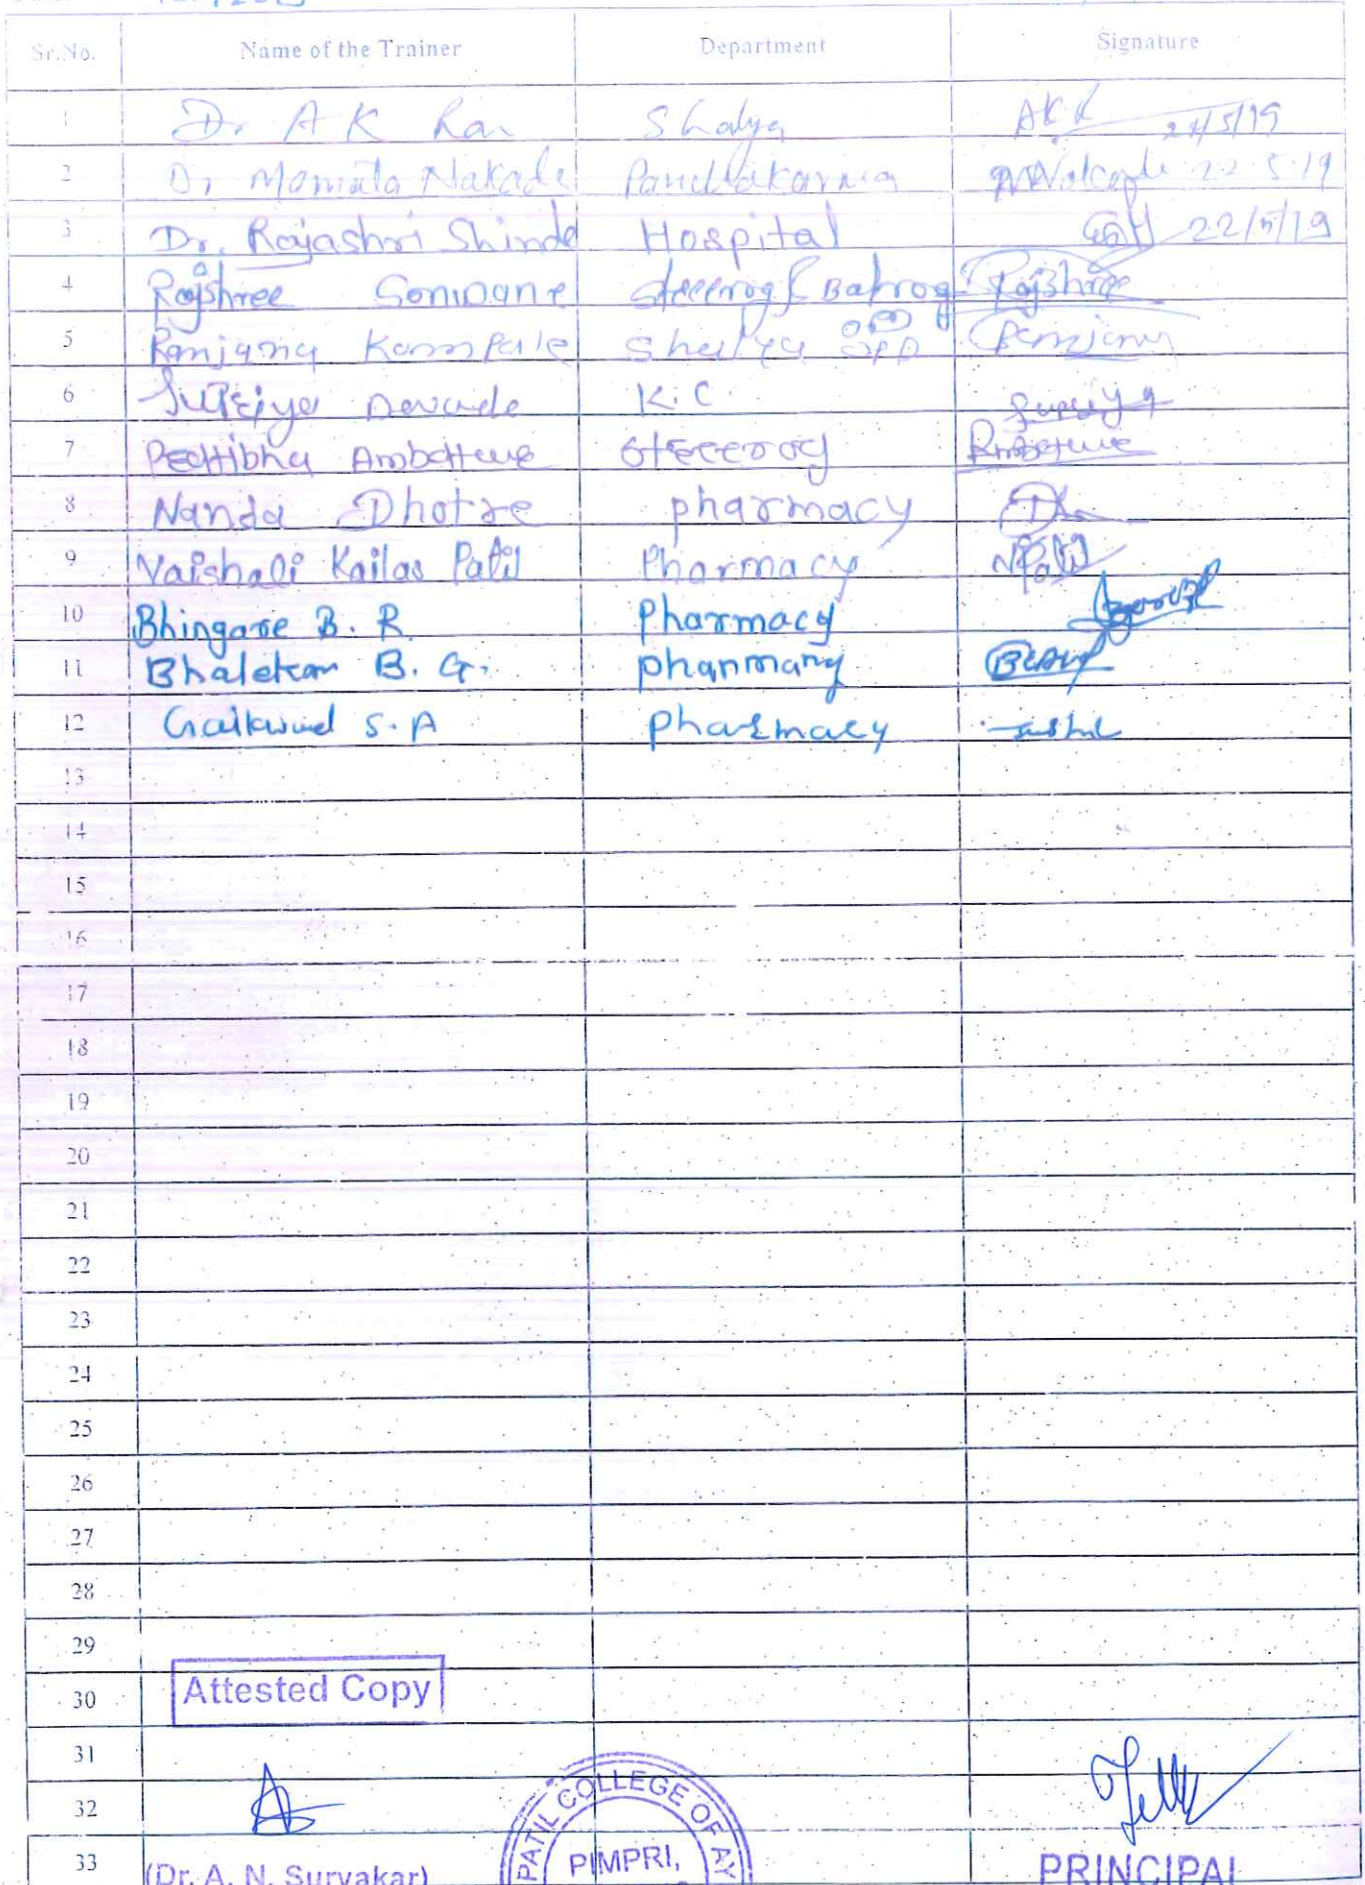 Sr.No. Name of the Trainer Department Signature
1 Dr A K Rai Shalya 21/5/19
2 Dr Mamata Nakade Panchakarma 22.5.19
3 Dr. Rajashri Shinde Hospital 22/5/19
4 Rajshree Sonwane Rajshree
5 Ranjana Kamble Shalya
6 Devade K.C.
7
8 Nanda Dhotre pharmacy
9 Vaishali Kailas Patil Pharmacy
10 Bhingare B. R. Pharmacy
11 Bhalekar B. G. pharmany
12 Gaikwad S.A pharmacy
13
14
15
16
17
18
19
20
21
22
23
24
25
26
27
28
29
30 Attested Copy
31
32
33 (Dr. A. N. Suryakar) PATIL COLLEGE OF AY PIMPRI, PRINCIPAL